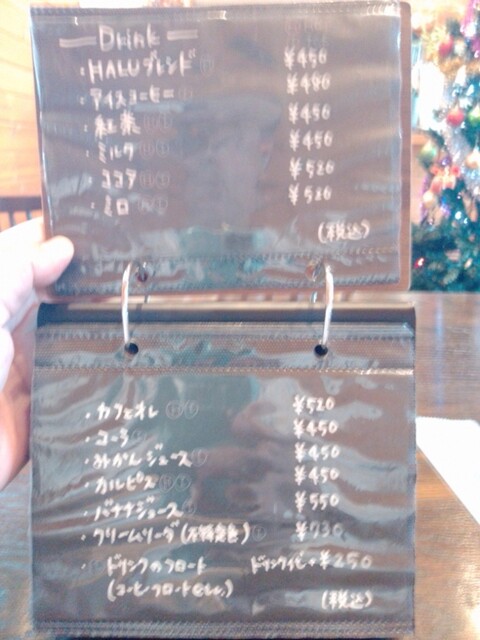 Drink
・HALUブレンド ¥450
・アイスコーヒー ¥480
・紅茶 ¥450
・ミルク ¥450
・ココア ¥520
・ミロ ¥520
(税込)
・カフェオレ ¥520
・コーラ ¥450
・みかんジュース ¥450
・カルピス ¥450
・バナナジュース ¥550
・クリームソーダ ¥730
・ドリンクのフロート ドリンク代+¥250
(コーヒーフロートetc.)
(税込)